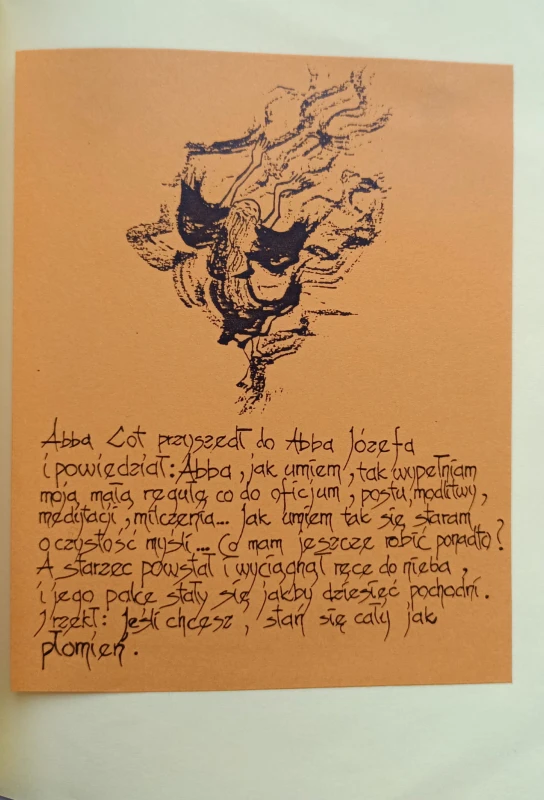 Abba Lot przyszedł do Abba Józefa
i powiedział: Abba, jak umiem, tak wypełniam
moją małą regułę co do oficjum, postu, modlitwy,
medytacji, milczenia... Jak umiem tak się staram
o czystość myśli... Co mam jeszcze robić ponadto?
A starzec powstał i wyciągnął ręce do nieba,
i jego palce stały się jakby dziesięć pochodni.
I rzekł: Jeśli chcesz, stań się cały jak
płomień.